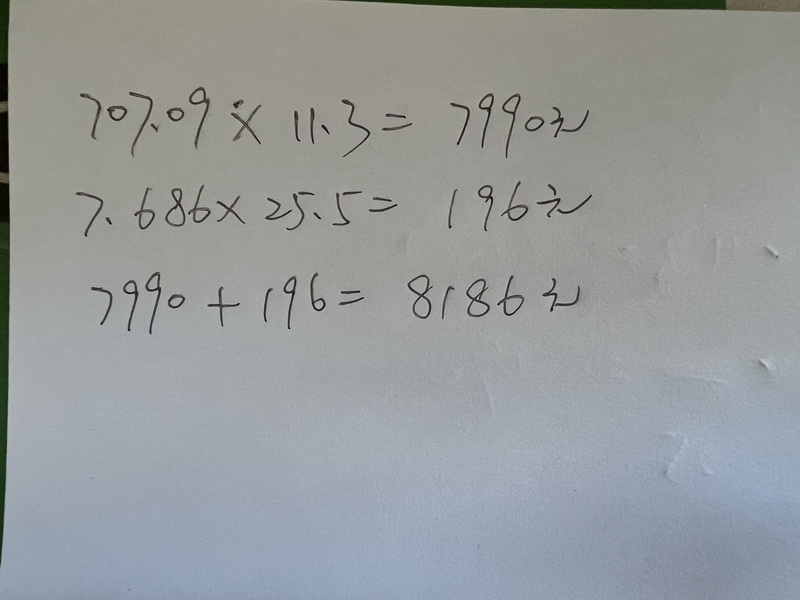 707.09 × 11.3 = 7990元
7.686 × 25.5 = 196元
7990 + 196 = 8186元